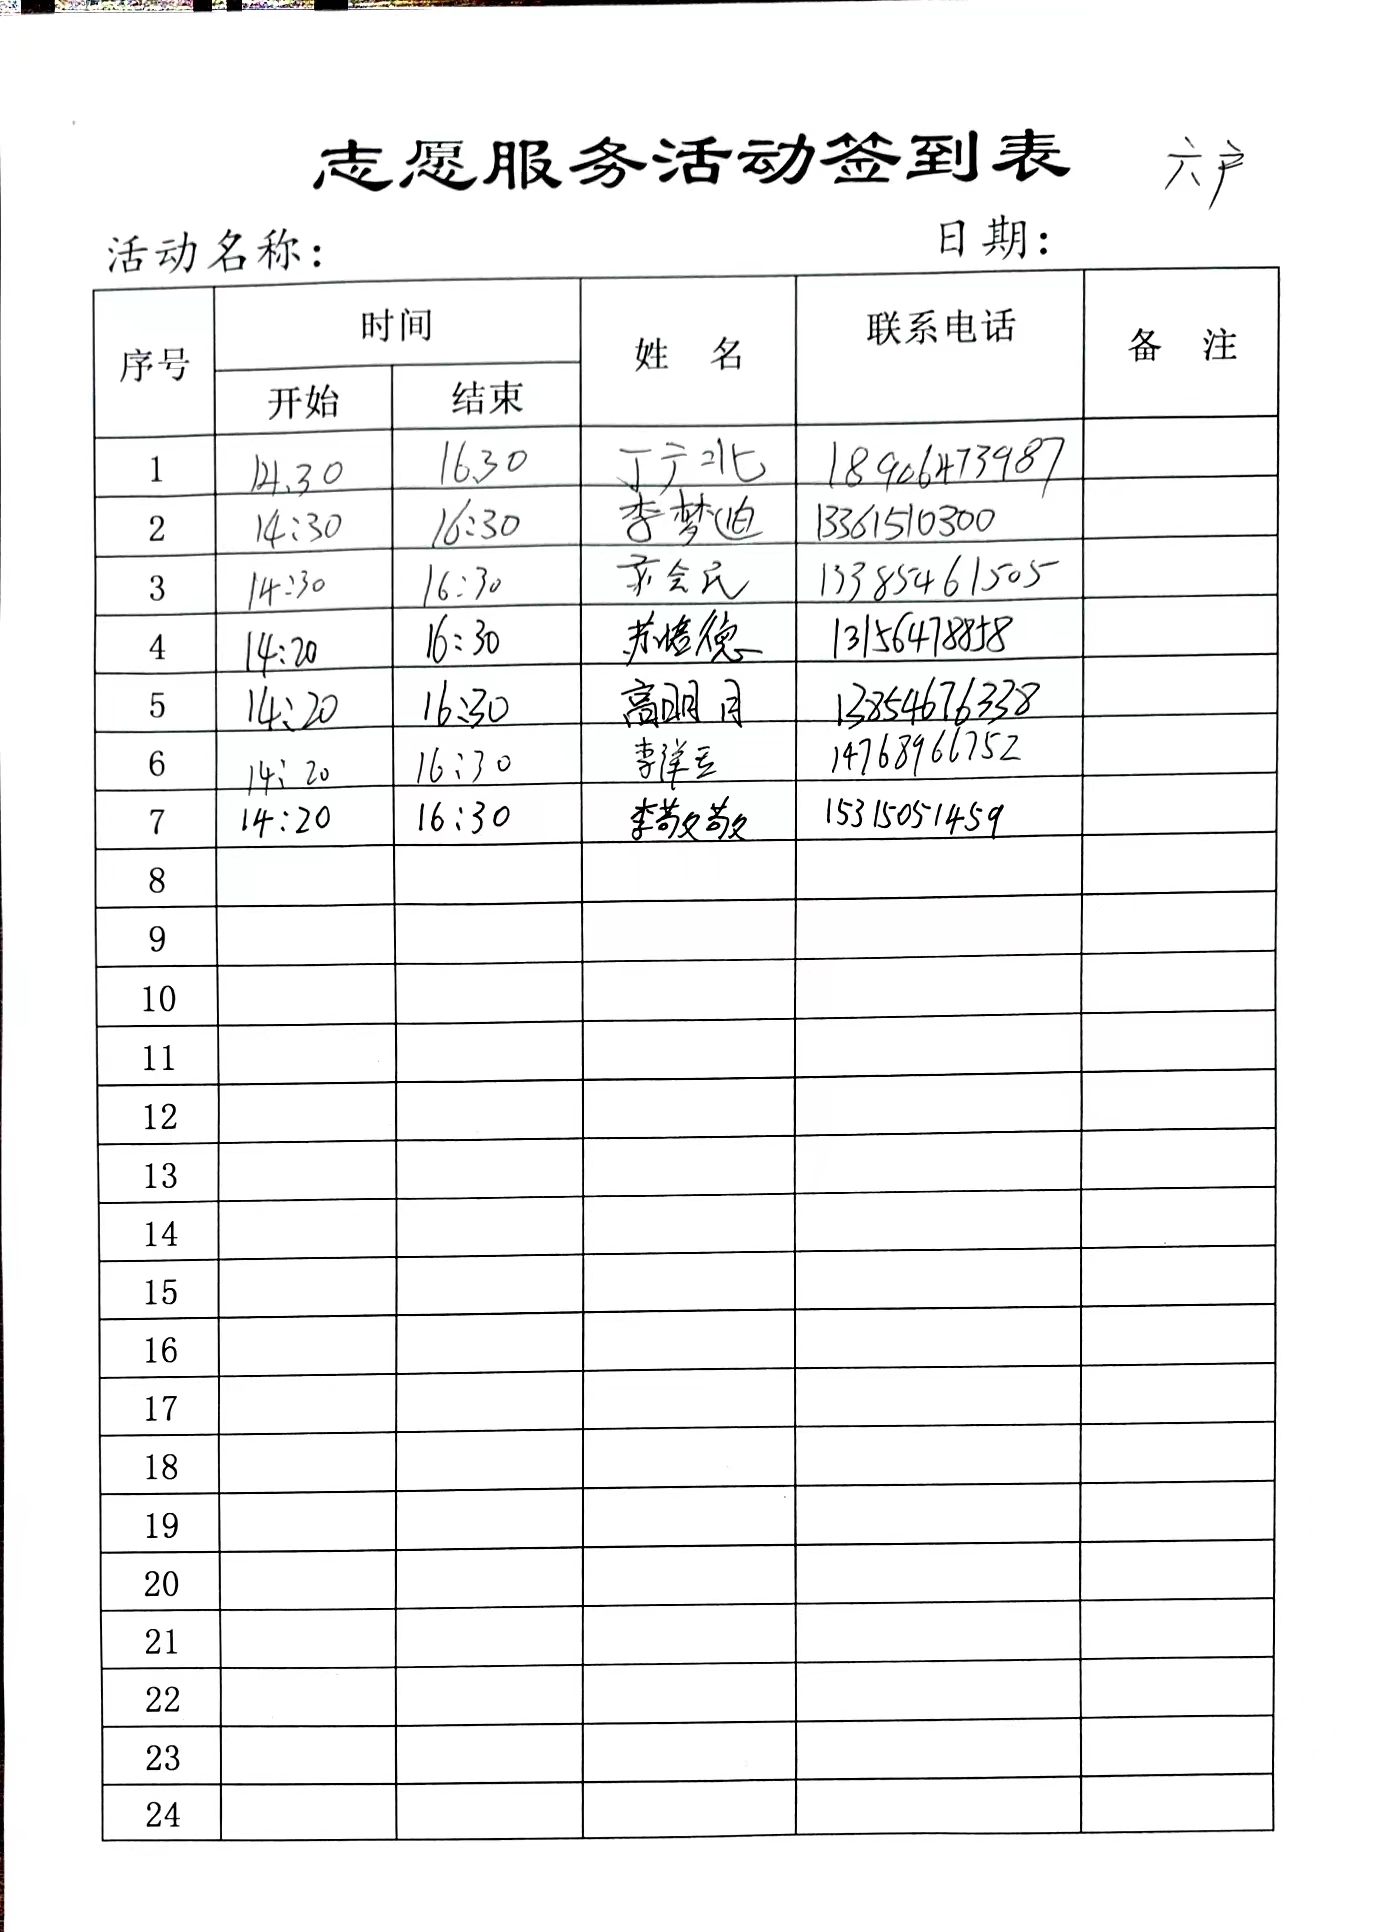 志愿服务活动签到表 六户
活动名称： 日期：
序号 时间 姓 名 联系电话 备 注
开始 结束
1 14.30 16.30 丁广北 18906473987
2 14:30 16:30 李梦迪 13361510300
3 14:30 16:30 会民 13385461505
4 14:20 16:30 苏德 13156478858
5 14:20 16:30 高明月 13854676338
6 14:20 16:30 李洋 14768966752
7 14:20 16:30 李敬敬 15315051459
8
9
10
11
12
13
14
15
16
17
18
19
20
21
22
23
24